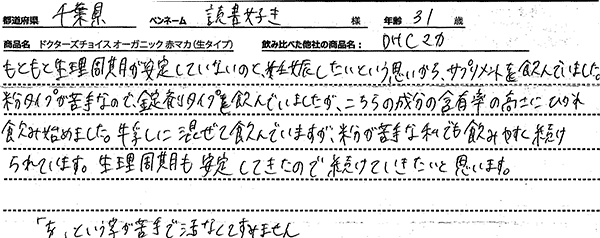 都道府県 千葉県 ペンネーム 読書好き 様 年齢 31 歳
商品名 ドクターズチョイス オーガニック 赤マカ (生タイプ) 飲み比べた他社の商品名: DHCマカ
もともと生理周期が安定していないのと、妊娠したいという思いから、サプリメントを飲んでいました。
粉タイプが苦手なので、錠剤タイプを飲んでいましたが、こちらの成分の含有率の高さにひかれ
飲み始めました。牛乳に混ぜて飲んでいますが、粉が苦手な私でも飲みやすく続け
られています。生理周期も安定してきたので続けていきたいと思います。
という字が苦手で なくてすみません